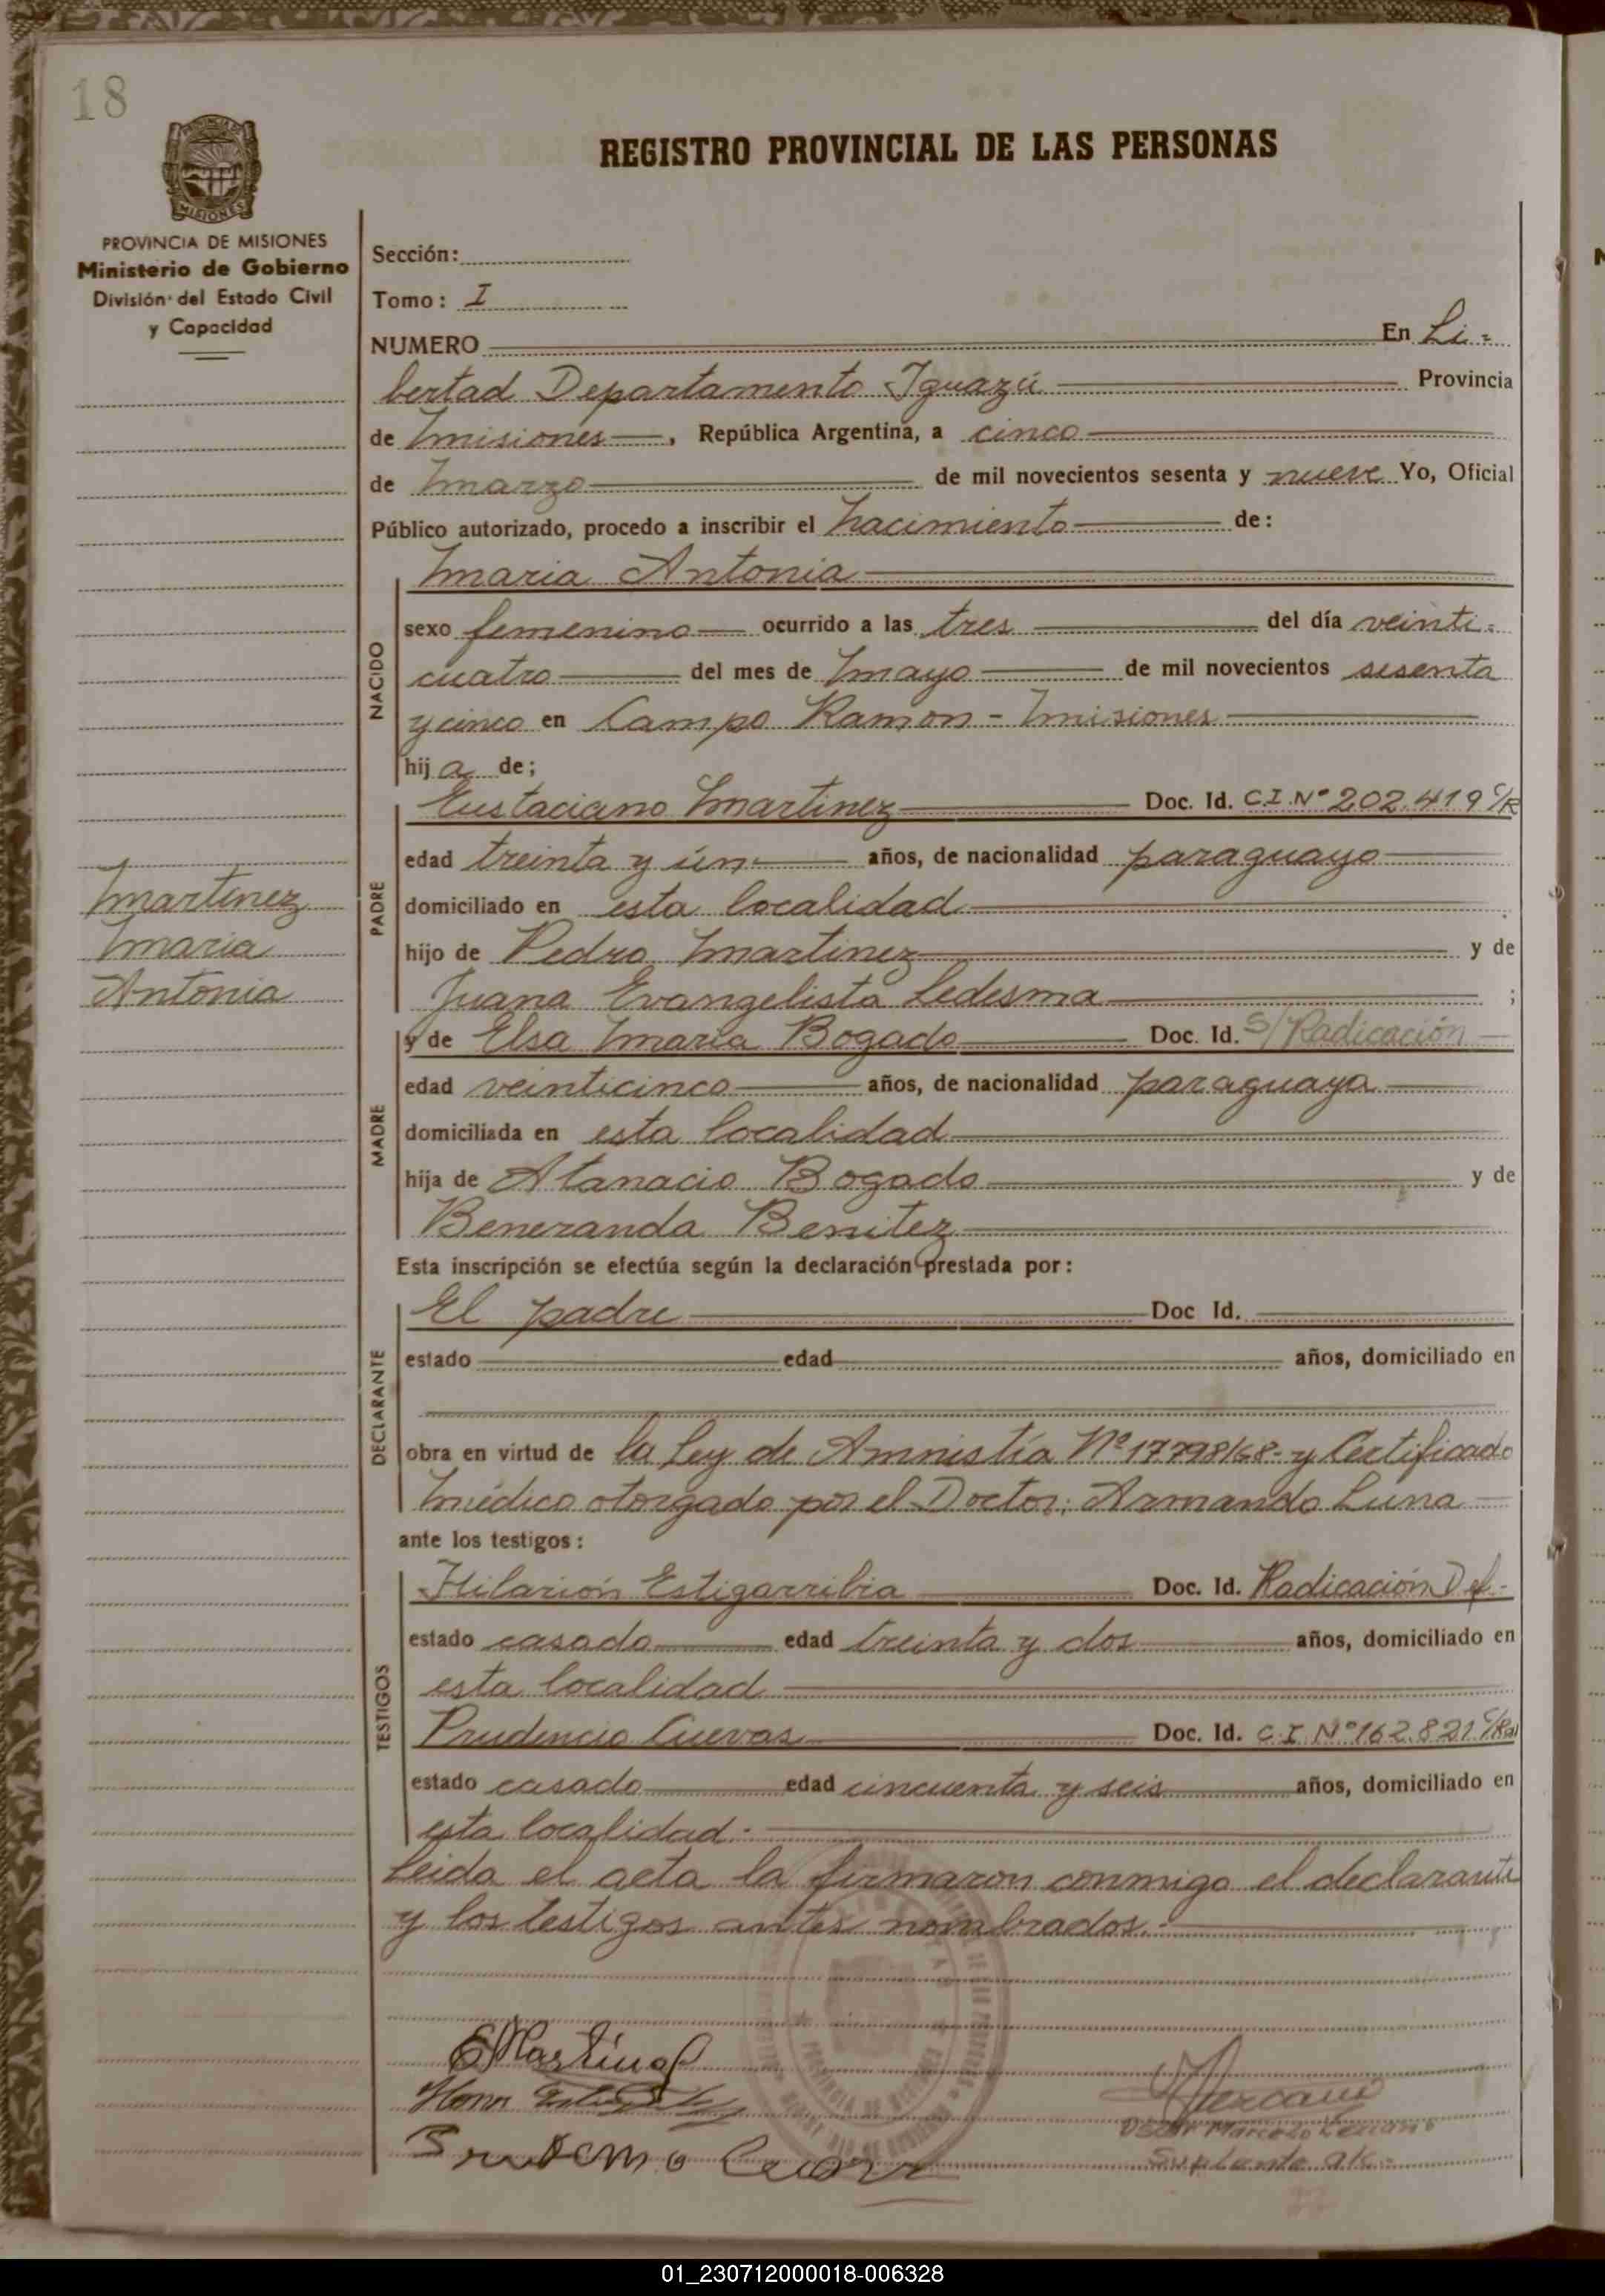 18
REGISTRO PROVINCIAL DE LAS PERSONAS
PROVINCIA DE MISIONES
Ministerio de Gobierno
División del Estado Civil
y Capacidad
Sección:
Tomo: I
NUMERO En Li-
bertad Departamento Iguazú Provincia
de Misiones, República Argentina, a cinco
de Marzo de mil novecientos sesenta y nueve Yo, Oficial
Público autorizado, procedo a inscribir el Nacimiento de:
Maria Antonia
NACIDO
sexo femenino ocurrido a las tres del día veinti-
cuatro del mes de Mayo de mil novecientos sesenta
y cinco en Campo Ramon - Misiones
hija de;
Eustaciano Martinez Doc. Id. C.I. Nº 202.419 C/R
PADRE
edad treinta y ún años, de nacionalidad paraguayo
domiciliado en esta localidad
hijo de Pedro Martinez y de
Juana Evangelista Ledesma ;
Martinez
Maria
Antonia
MADRE
y de Elsa Maria Bogado Doc. Id. S/Radicación
edad veinticinco años, de nacionalidad paraguaya
domiciliada en esta localidad
hija de Atanacio Bogado y de
Beneranda Benitez
Esta inscripción se efectúa según la declaración prestada por:
DECLARANTE
El padre Doc Id.
estado edad años, domiciliado en
obra en virtud de la Ley de Amnistía Nº 17798/68- y Certificado
Médico otorgado por el Doctor: Armando Luna
ante los testigos:
TESTIGOS
Hilarión Estigarribia Doc. Id. Radicación Def-
estado casado edad treinta y dos años, domiciliado en
esta localidad
Prudencio Cuevas Doc. Id. C.I. Nº 162.821 C/Rad
estado casado edad cincuenta y seis años, domiciliado en
esta localidad.-
Leida el acta la firmaron conmigo el declarante
y los testigos antes nombrados.-
EMartinez
Suplente
01_230712000018-006328